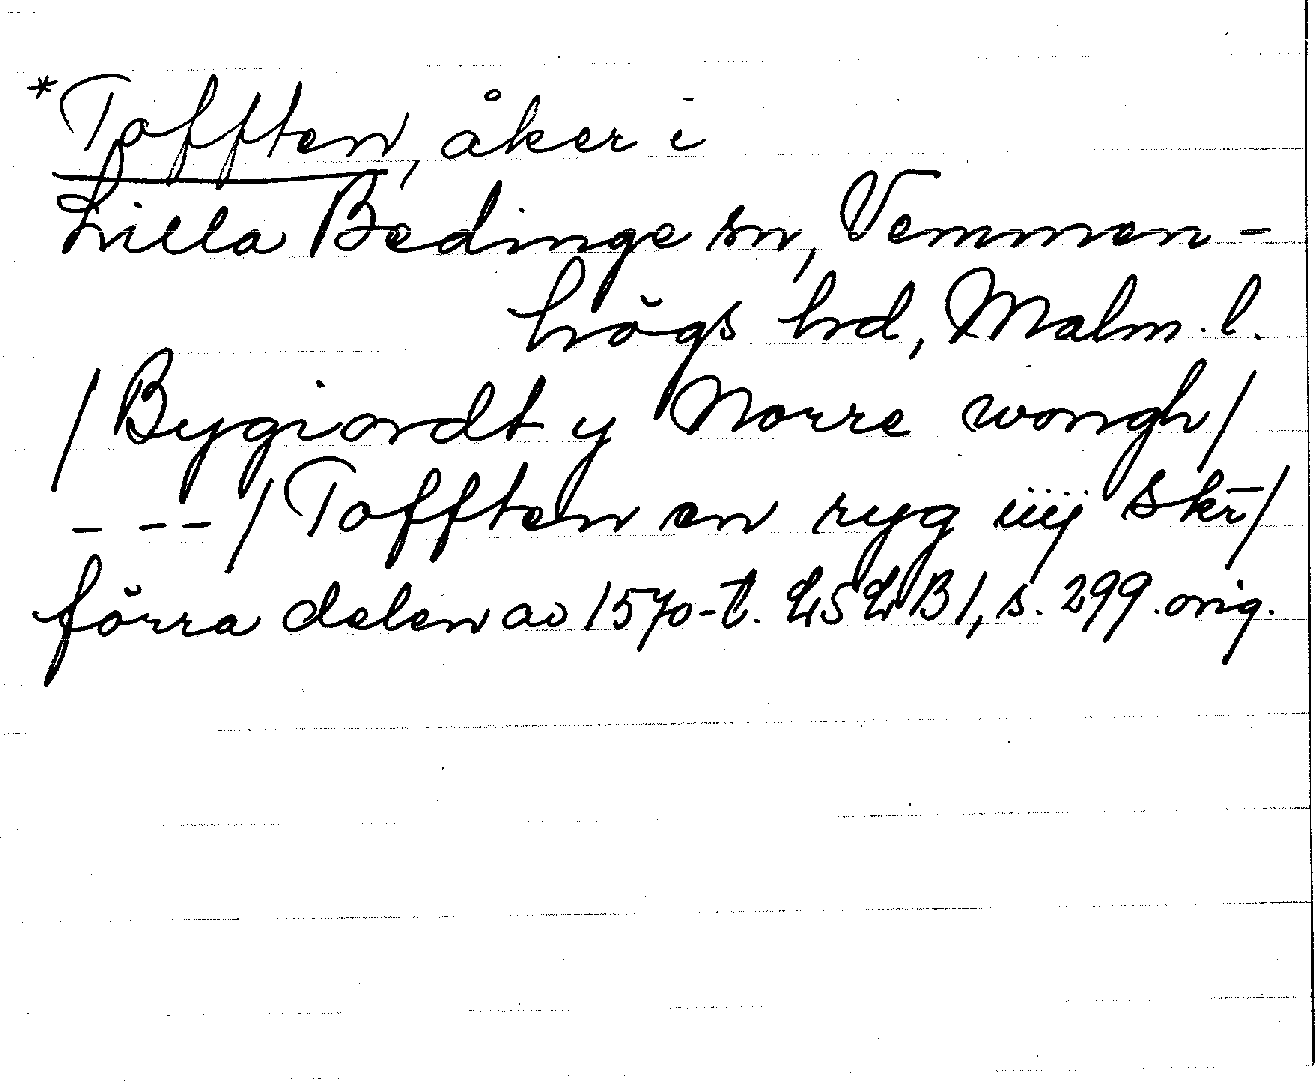 *Tofften, åker i
Lilla Bedinge sn, Vemmen-
högs hd, Malm. l.
/Bygiordt y Norre wongh/
- -- / Tofften en ryg iiij skr̄/
förra delen av 1570-t. LSLB1, s. 299. orig.